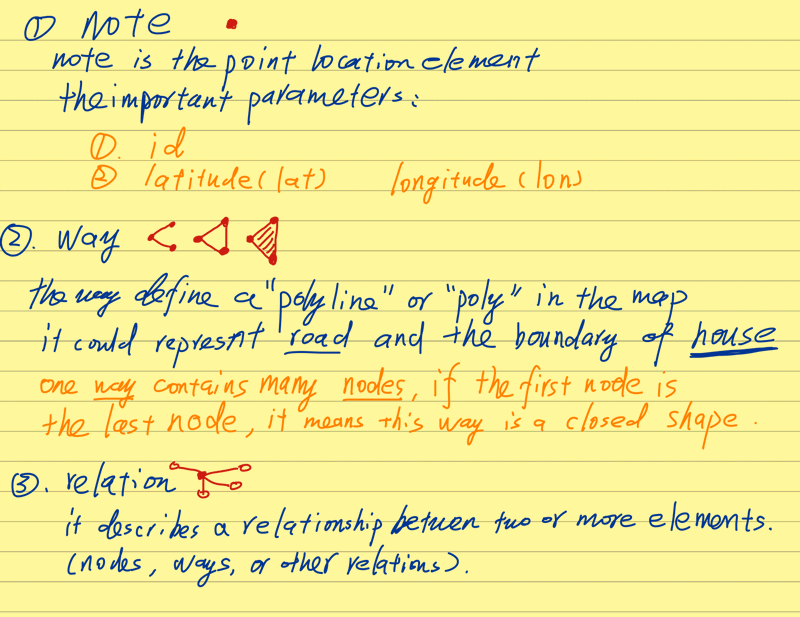 ① Note
note is the point location element
the important parameters:
①. id
② latitude(lat) longitude (lon)
②. way
the way define a "polyline" or "poly" in the map
it could represnt road and the boundary of house
one way contains many nodes, if the first node is
the last node, it means this way is a closed shape.
③. relation
it describes a relationship betwen two or more elements.
(nodes, ways, or other relations).